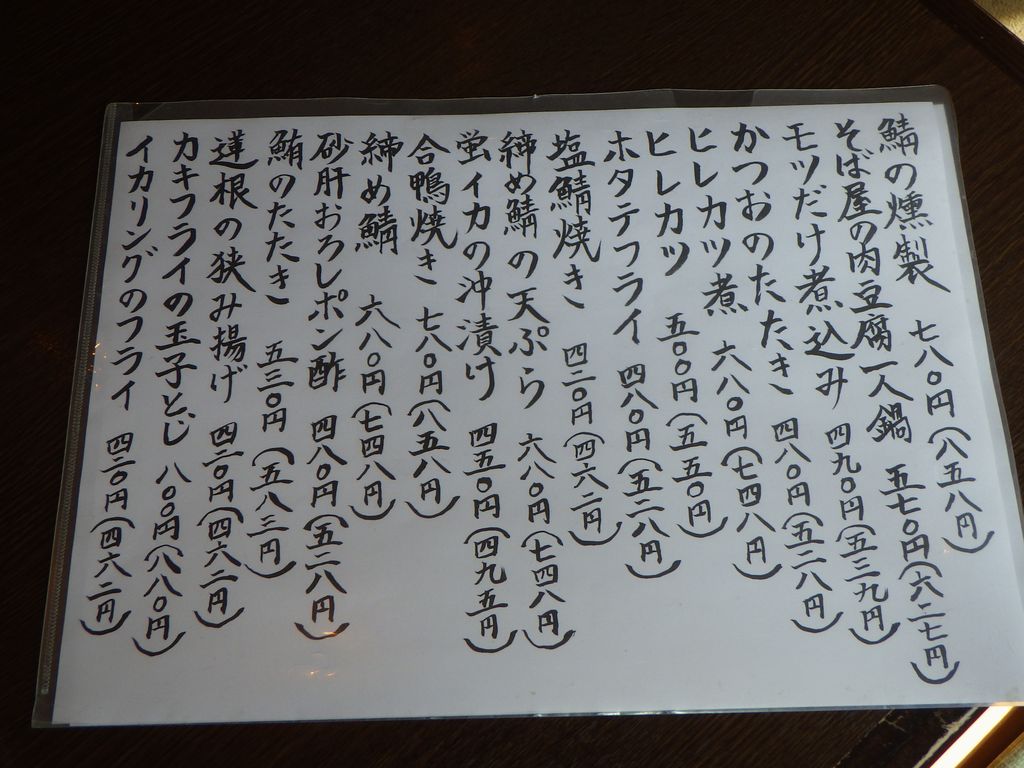 鯖の燻製 七八〇円(八五八円)
そば屋の肉豆腐一人鍋 五七〇円(六二七円)
モツだけ煮込み 四九〇円(五三九円)
かつおのたたき 四八〇円(五二八円)
ヒレカツ煮 六八〇円(七四八円)
ヒレカツ 五〇〇円(五五〇円)
ホタテフライ 四八〇円(五二八円)
塩鯖焼き 四二〇円(四六二円)
締め鯖の天ぷら 六八〇円(七四八円)
蛍イカの沖漬け 四五〇円(四九五円)
合鴨焼き 七八〇円(八五八円)
締め鯖 六八〇円(七四八円)
砂肝おろしポン酢 四八〇円(五二八円)
鮪のたたき 五三〇円(五八三円)
蓮根の狭み揚げ 四二〇円(四六二円)
カキフライの玉子とじ 八〇〇円(八八〇円)
イカリングのフライ 四二〇円(四六二円)